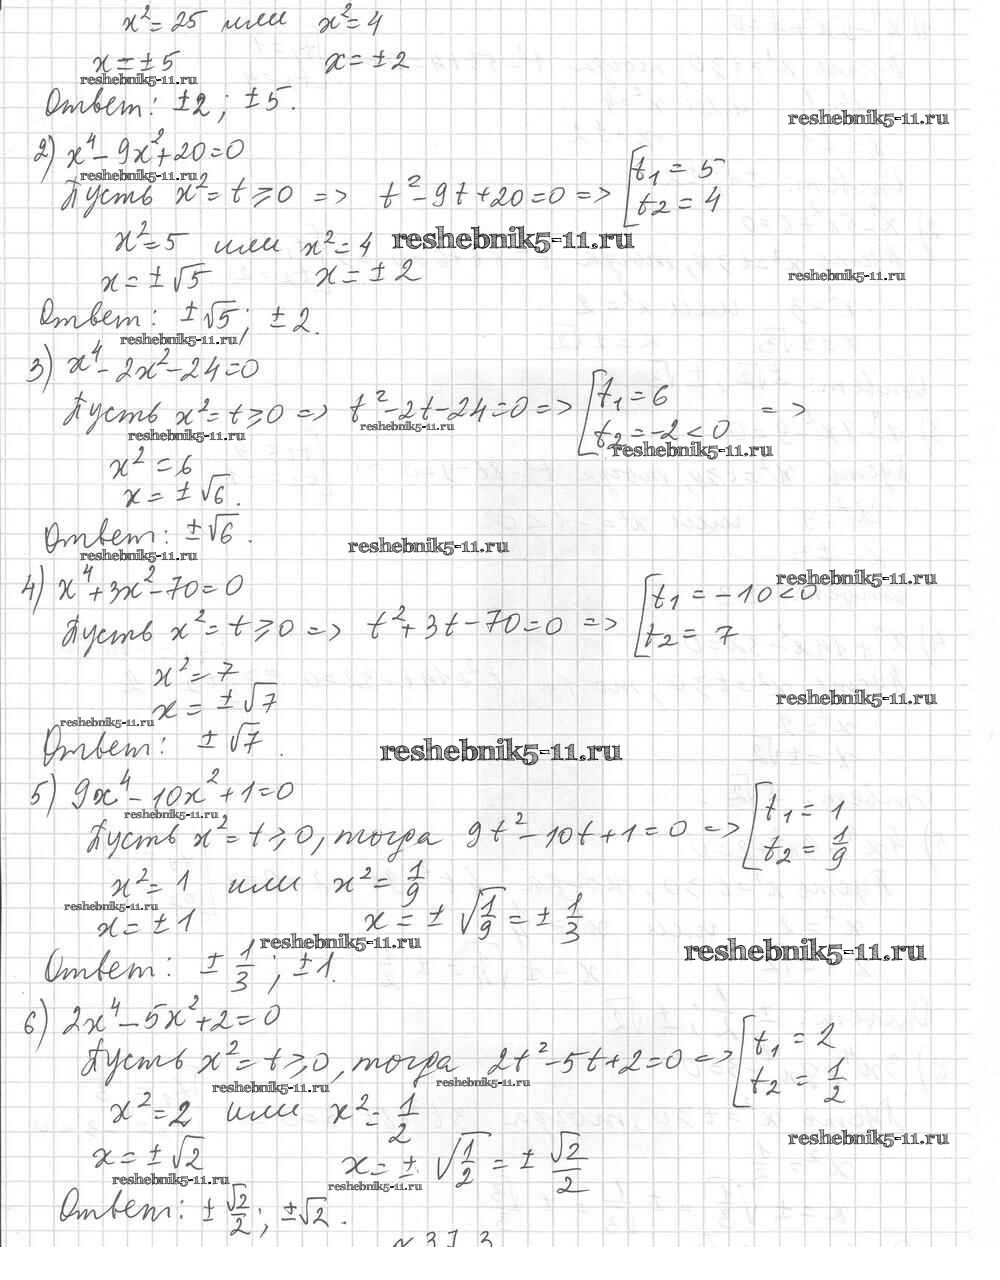 x² = 25 или x² = 4
x = ±5 x = ±2
reshebnik5-11.ru
Ответ: ±2; ±5.
reshebnik5-11.ru
2) x⁴ - 9x² + 20 = 0
reshebnik5-11.ru
Пусть x² = t ≥ 0 => t² - 9t + 20 = 0 => [t₁ = 5
t₂ = 4
x² = 5 или x² = 4 reshebnik5-11.ru
x = ±√5 x = ±2 reshebnik5-11.ru
Ответ: ±√5; ±2.
reshebnik5-11.ru
3) x⁴ - 2x² - 24 = 0
Пусть x² = t ≥ 0 => t² - 2t - 24 = 0 => [t₁ = 6 =>
t₂ = -2 < 0
reshebnik5-11.ru reshebnik5-11.ru reshebnik5-11.ru
x² = 6
x = ±√6.
Ответ: ±√6.
reshebnik5-11.ru reshebnik5-11.ru
4) x⁴ + 3x² - 70 = 0 reshebnik5-11.ru
Пусть x² = t ≥ 0 => t² + 3t - 70 = 0 => [t₁ = -10 < 0
t₂ = 7
x² = 7
x = ±√7 reshebnik5-11.ru
reshebnik5-11.ru
Ответ: ±√7. reshebnik5-11.ru
5) 9x⁴ - 10x² + 1 = 0
reshebnik5-11.ru
Пусть x² = t ≥ 0, тогда 9t² - 10t + 1 = 0 => [t₁ = 1
t₂ = 1/9
x² = 1 или x² = 1/9
reshebnik5-11.ru
x = ±1 x = ±√(1/9) = ± 1/3
reshebnik5-11.ru reshebnik5-11.ru
Ответ: ± 1/3; ±1.
6) 2x⁴ - 5x² + 2 = 0
Пусть x² = t ≥ 0, тогда 2t² - 5t + 2 = 0 => [t₁ = 2
t₂ = 1/2
reshebnik5-11.ru reshebnik5-11.ru
x² = 2 или x² = 1/2
reshebnik5-11.ru
x = ±√2 x = ±√(1/2) = ± √2/2
reshebnik5-11.ru reshebnik5-11.ru
Ответ: ± √2/2; ±√2.